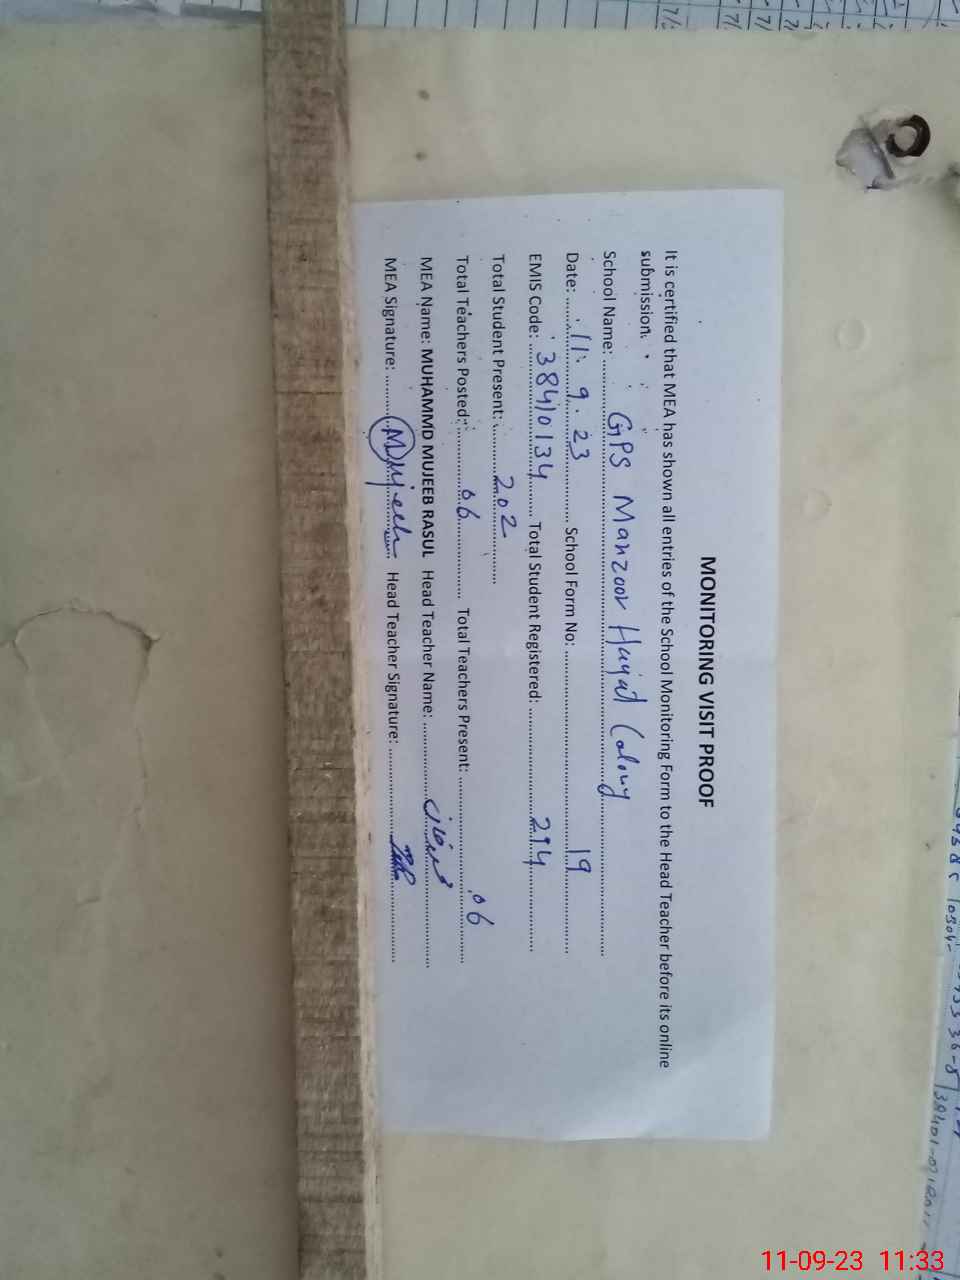 MONITORING VISIT PROOF
It is certified that MEA has shown all entries of the School Monitoring Form to the Head Teacher before its online
submission.
School Name: GPS Manzoor Hayat Colony
Date: 11.9.23 School Form No: 19
EMIS Code: 38410134 Total Student Registered: 214
Total Student Present: 202
Total Teachers Posted: 06 Total Teachers Present: 06
MEA Name: MUHAMMD MUJEEB RASUL Head Teacher Name:
MEA Signature: Mujeeb Head Teacher Signature:
11-09-23 11:33